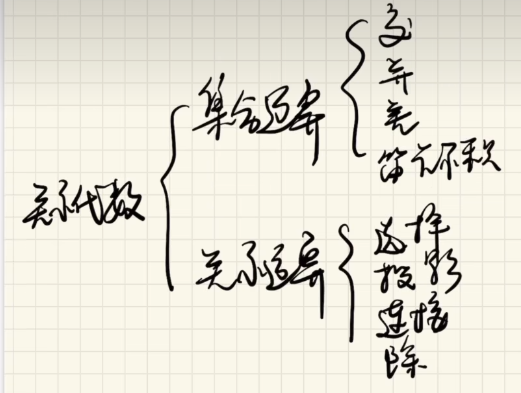 关系代数
集合运算
交
并
差
笛卡尔积
关系运算
选择
投影
连接
除